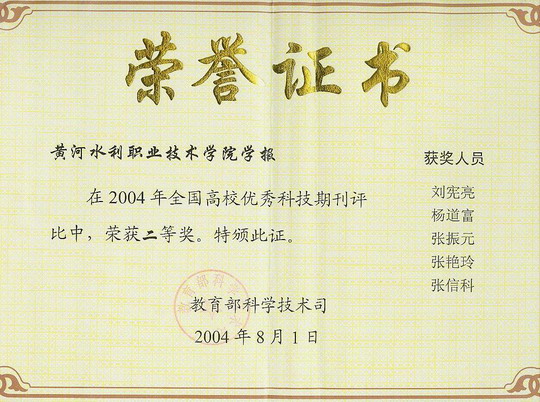 荣誉证书
黄河水利职业技术学院学报
在2004年全国高校优秀科技期刊评
比中，荣获二等奖。特颁此证。
教育部科学技术司
2004年8月1日
获奖人员
刘宪亮
杨道富
张振元
张艳玲
张信科